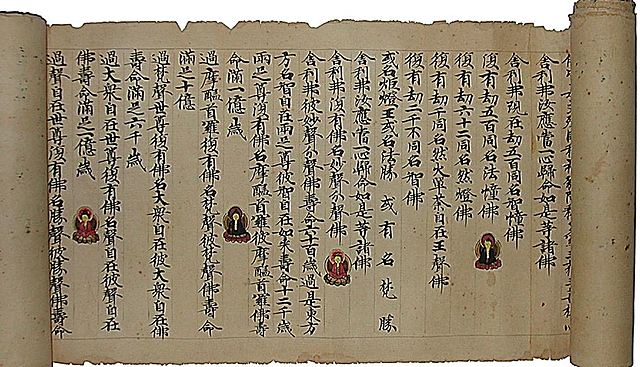 舍利弗汝應當一心歸命如是等諸佛
舍利弗現在劫五百同名智幢佛
復有劫五百同名法幢佛
復有劫六十二同名然燈佛
復有劫一千同名然火單荼自在王聲佛
復有劫二千不同名智佛
或名炬燈王或名法勝 或有名梵勝
舍利弗汝應當一心歸命如是等諸佛
舍利弗復有佛名妙聲分聲佛
舍利弗彼妙聲分聲佛壽命六十百歲過是東方
方名智自在兩足尊彼智自在如來壽命十二千歲
兩足尊復有佛名摩醯首羅彼摩醯首羅佛壽
命滿一億歲
過摩醯首羅復有佛名梵聲彼梵聲佛壽命
滿足十億
過梵聲世尊復有佛名大衆自在彼大衆自在
壽命滿足六十千歲
過大衆自在世尊復有佛名聲自在彼聲自在
佛壽命滿足一億歲
過聲自在世尊復有佛名勝聲彼勝聲佛壽命